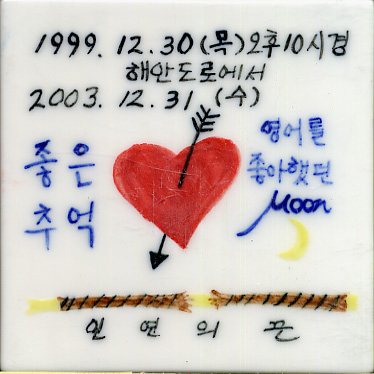 1999. 12.30(목)오후10시경
해안도로에서
2003. 12.31 (수)
좋은
추억
영어를
좋아했던
Moon
인연의 끈